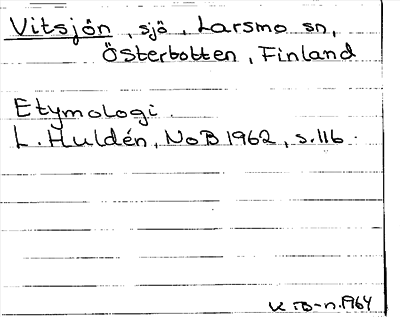 Vitsjön, sjö, Larsmo sn,
Österbotten, Finland
Etymologi.
L. Huldén, NoB 1962, s. 116.
K. B-n. 1964